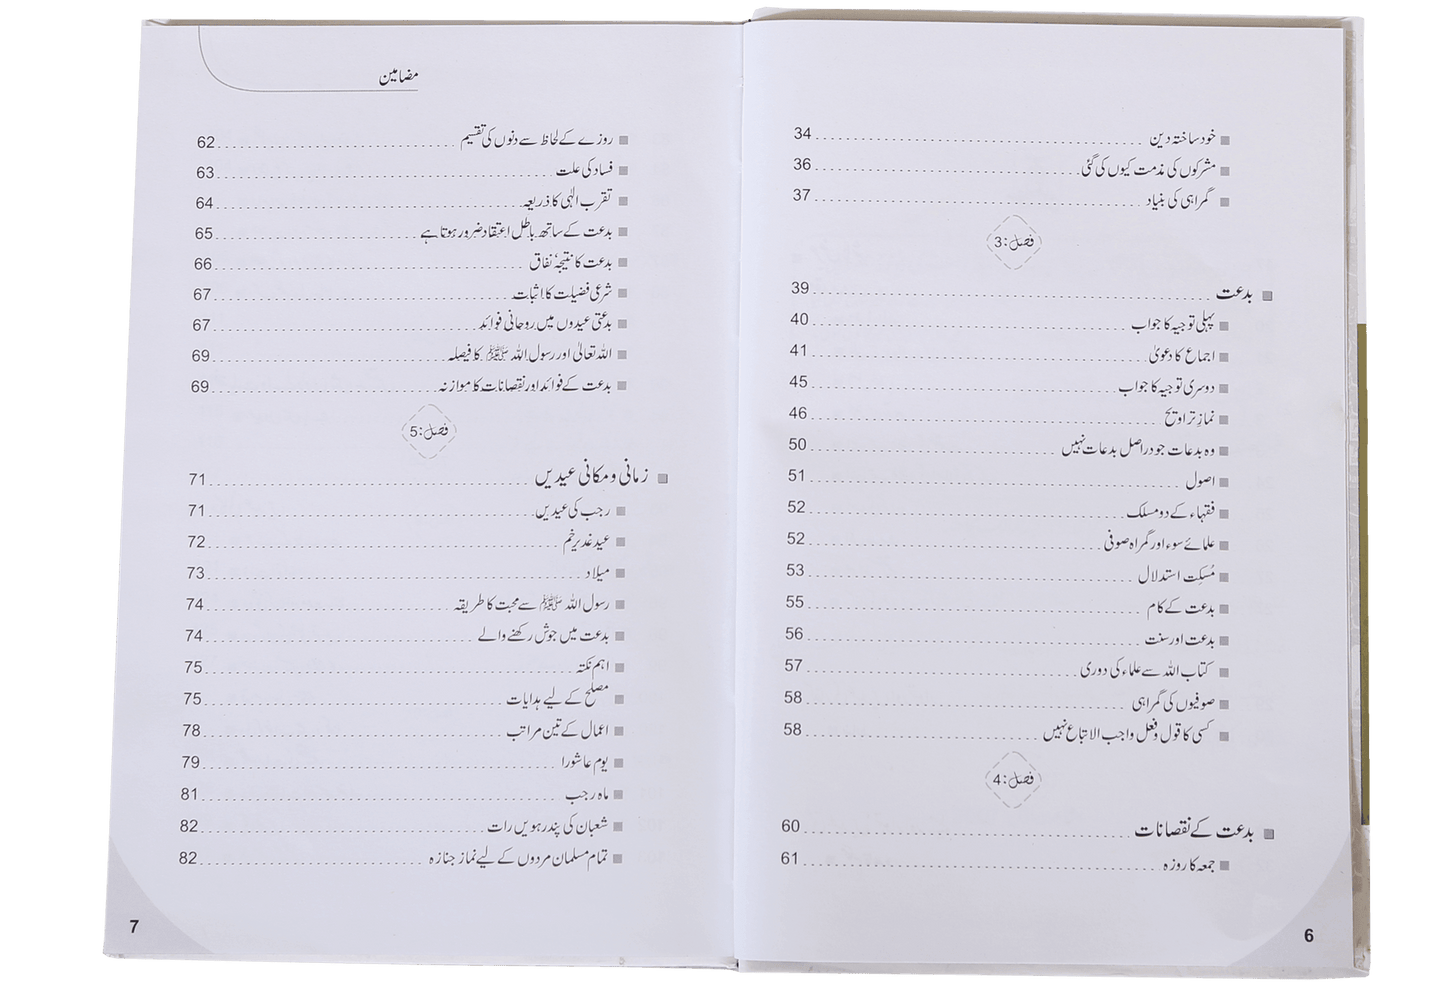 خود ساختہ دین ........ 34
مشرکوں کی مذمت کیوں کی گئی ........ 36
گمراہی کی بنیاد ........ 37
فصل : 3
بدعت ........ 39
پہلی توجیہ کا جواب ........ 40
اجماع کا دعویٰ ........ 41
دوسری توجیہ کا جواب ........ 45
نمازِ تراویح ........ 46
وہ بدعات جو دراصل بدعات نہیں ........ 50
اصول ........ 51
فقہاء کے دو مسلک ........ 52
علمائے سوء اور گمراہ صوفی ........ 52
مُسکِت استدلال ........ 53
بدعت کے کام ........ 55
بدعت اور سنت ........ 56
کتاب اللہ سے علماء کی دوری ........ 57
صوفیوں کی گمراہی ........ 58
کسی کا قول و فعل واجب الاتباع نہیں ........ 58
فصل : 4
بدعت کے نقصانات ........ 60
جمعہ کا روزہ ........ 61
6
مضامین
روزے کے لحاظ سے دنوں کی تقسیم ........ 62
فساد کی علت ........ 63
تقرب الٰہی کا ذریعہ ........ 64
بدعت کے ساتھ باطل اعتقاد ضرور ہوتا ہے ........ 65
بدعت کا نتیجہ نفاق ........ 66
شرعی فضیلت کا اثبات ........ 67
بدعتی عیدوں میں روحانی فوائد ........ 67
اللہ تعالیٰ اور رسول اللہ ﷺ کا فیصلہ ........ 69
بدعت کے فوائد اور نقصانات کا موازنہ ........ 69
فصل : 5
زمانی و مکانی عیدیں ........ 71
رجب کی عیدیں ........ 71
عید غدیر خم ........ 72
میلاد ........ 73
رسول اللہ ﷺ سے محبت کا طریقہ ........ 74
بدعت میں جوش رکھنے والے ........ 74
اہم نکتہ ........ 75
مصلح کے لیے ہدایات ........ 75
اعمال کے تین مراتب ........ 78
یوم عاشورا ........ 79
ماہ رجب ........ 81
شعبان کی پندرہویں رات ........ 82
تمام مسلمان مردوں کے لیے نماز جنازہ ........ 82
7